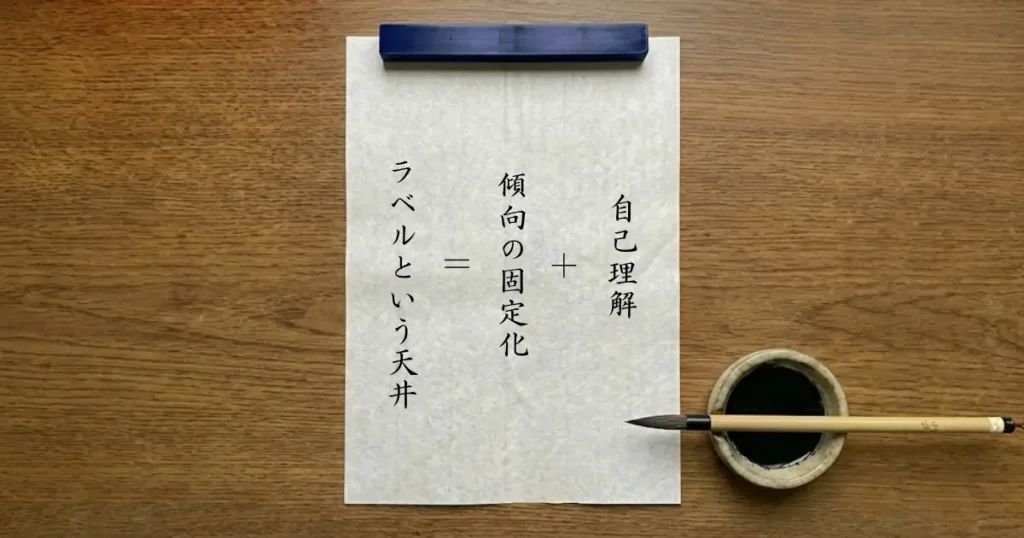 自己理解
+
傾向の固定化
=
ラベルという天井